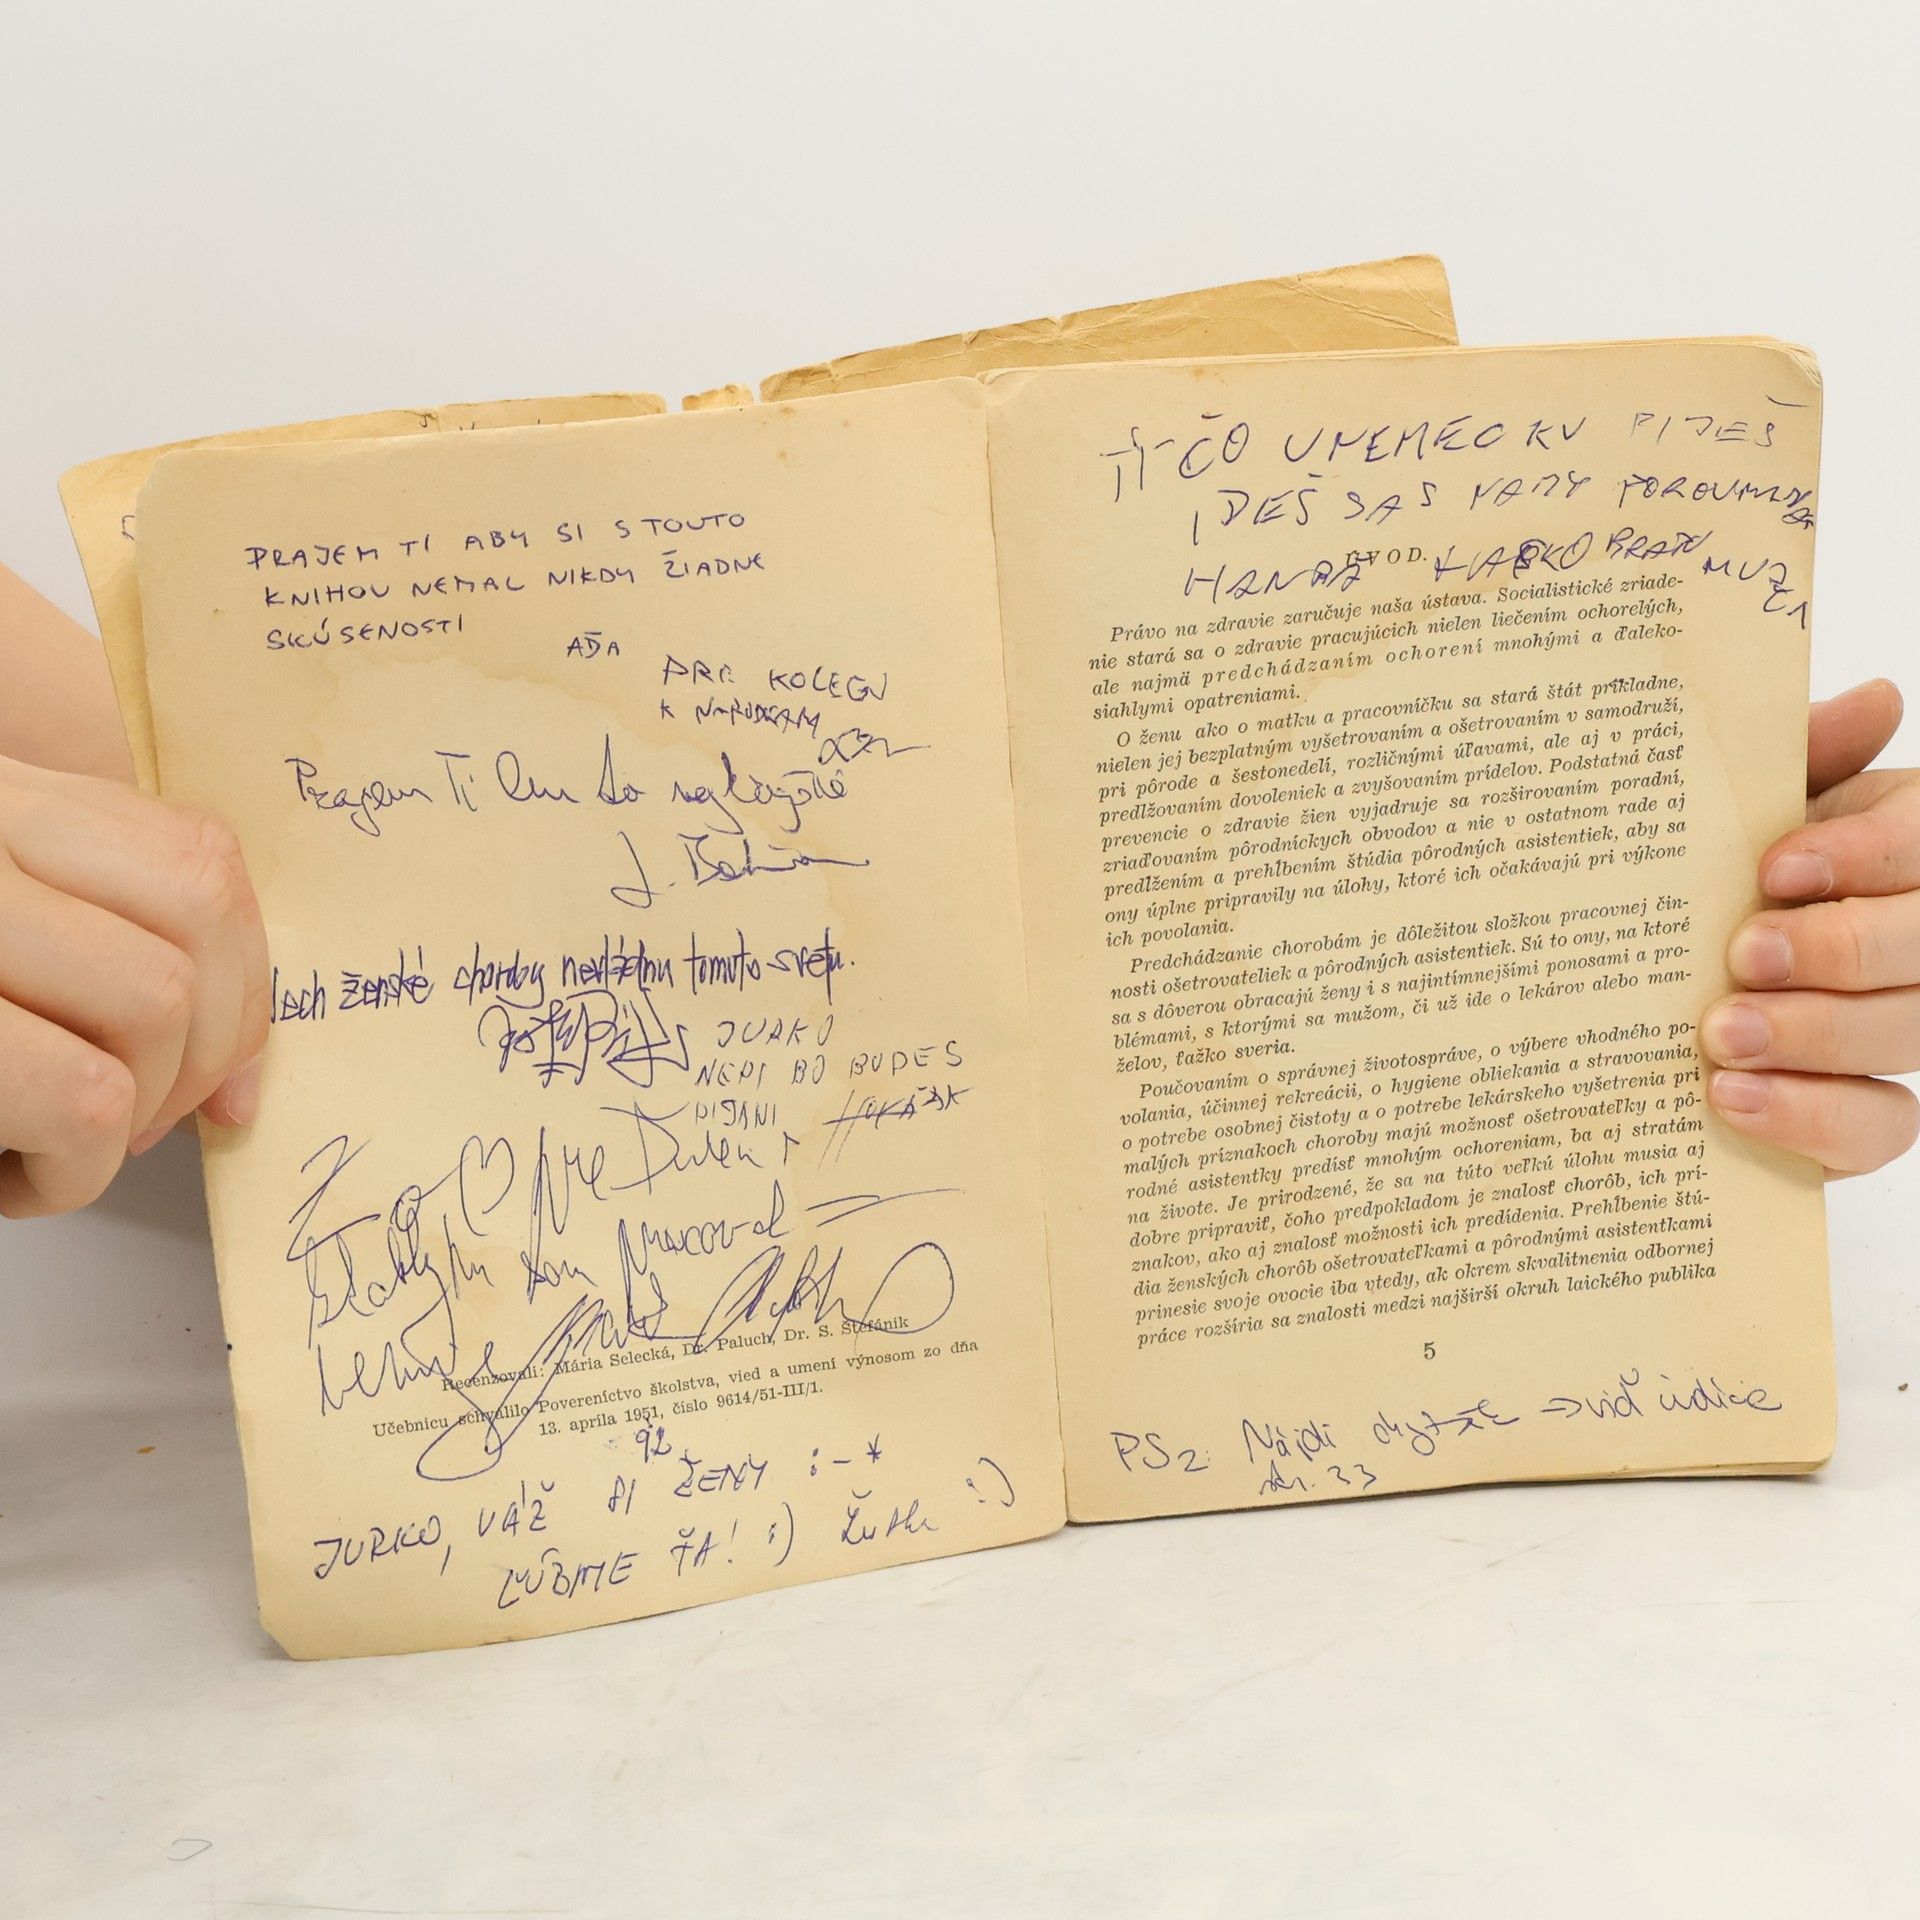 PRAJEM TI ABY SI S TOUTO
KNIHOU NEMAL NIKDY ŽIADNE
SKÚSENOSTI
KOLEGU
K
Prajem Ti len to
ženské choroby nevládnu tomuto svetu.
JURKO
NEPI BO BUDES
PIJANI
som pracoval
Recenzovali: Mária Selecká, Dr. Paluch, Dr. S. Štefánik
Učebnicu schválilo Povereníctvo školstva, vied a umení výnosom zo dňa
13. apríla 1951, číslo 9614/51-III/1.
92
JURKO, VÁŽ SI ŽENY :-*
ĽÚBME ŤA! :) :)
TY ČO V NEMECKU PIJEŠ
IDEŠ SA S NAMI
ÚVOD.
Právo na zdravie zaručuje naša ústava. Socialistické zriade-
nie stará sa o zdravie pracujúcich nielen liečením ochorelých,
ale najmä predchádzaním ochorení mnohými a ďaleko-
siahlymi opatreniami.
O ženu ako o matku a pracovníčku sa stará štát príkladne,
nielen jej bezplatným vyšetrovaním a ošetrovaním v samodruží,
pri pôrode a šestonedelí, rozličnými úľavami, ale aj v práci,
predlžovaním dovoleniek a zvyšovaním prídelov. Podstatná časť
prevencie o zdravie žien vyjadruje sa rozširovaním poradní,
zriaďovaním pôrodníckych obvodov a nie v ostatnom rade aj
predĺžením a prehĺbením štúdia pôrodných asistentiek, aby sa
ony úplne pripravily na úlohy, ktoré ich očakávajú pri výkone
ich povolania.
Predchádzanie chorobám je dôležitou složkou pracovnej čin-
nosti ošetrovateliek a pôrodných asistentiek. Sú to ony, na ktoré
sa s dôverou obracajú ženy i s najintímnejšími ponosami a pro-
blémami, s ktorými sa mužom, či už ide o lekárov alebo man-
želov, ťažko sveria.
Poučovaním o správnej životospráve, o výbere vhodného po-
volania, účinnej rekreácii, o hygiene obliekania a stravovania,
o potrebe osobnej čistoty a o potrebe lekárskeho vyšetrenia pri
malých príznakoch choroby majú možnosť ošetrovateľky a pô-
rodné asistentky predísť mnohým ochoreniam, ba aj stratám
na živote. Je prirodzené, že sa na túto veľkú úlohu musia aj
dobre pripraviť, čoho predpokladom je znalosť chorôb, ich prí-
znakov, ako aj znalosť možnosti ich predídenia. Prehĺbenie štú-
dia ženských chorôb ošetrovateľkami a pôrodnými asistentkami
prinesie svoje ovocie iba vtedy, ak okrem skvalitnenia odbornej
práce rozšíria sa znalosti medzi najširší okruh laického publika
5
PS2: Nájdi → viď
str. 33